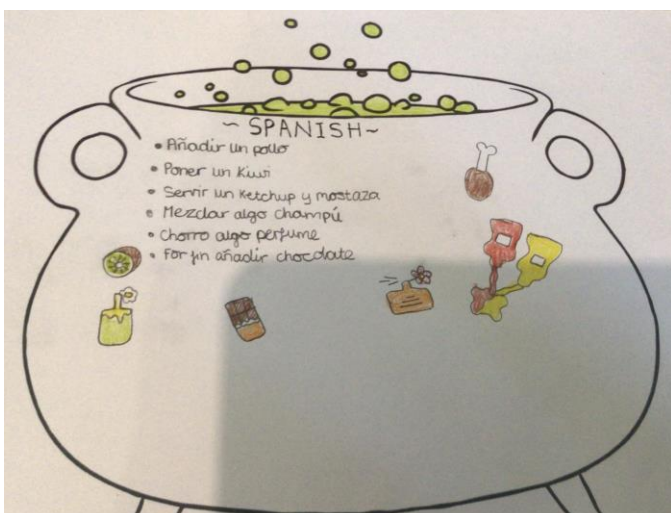 ~ SPANISH ~
• Añadir un pollo
• Poner un Kiwi
• Servir un Ketchup y mostaza
• Mezclar algo champú
• Chorro algo perfume
• For fin añadir chocolate